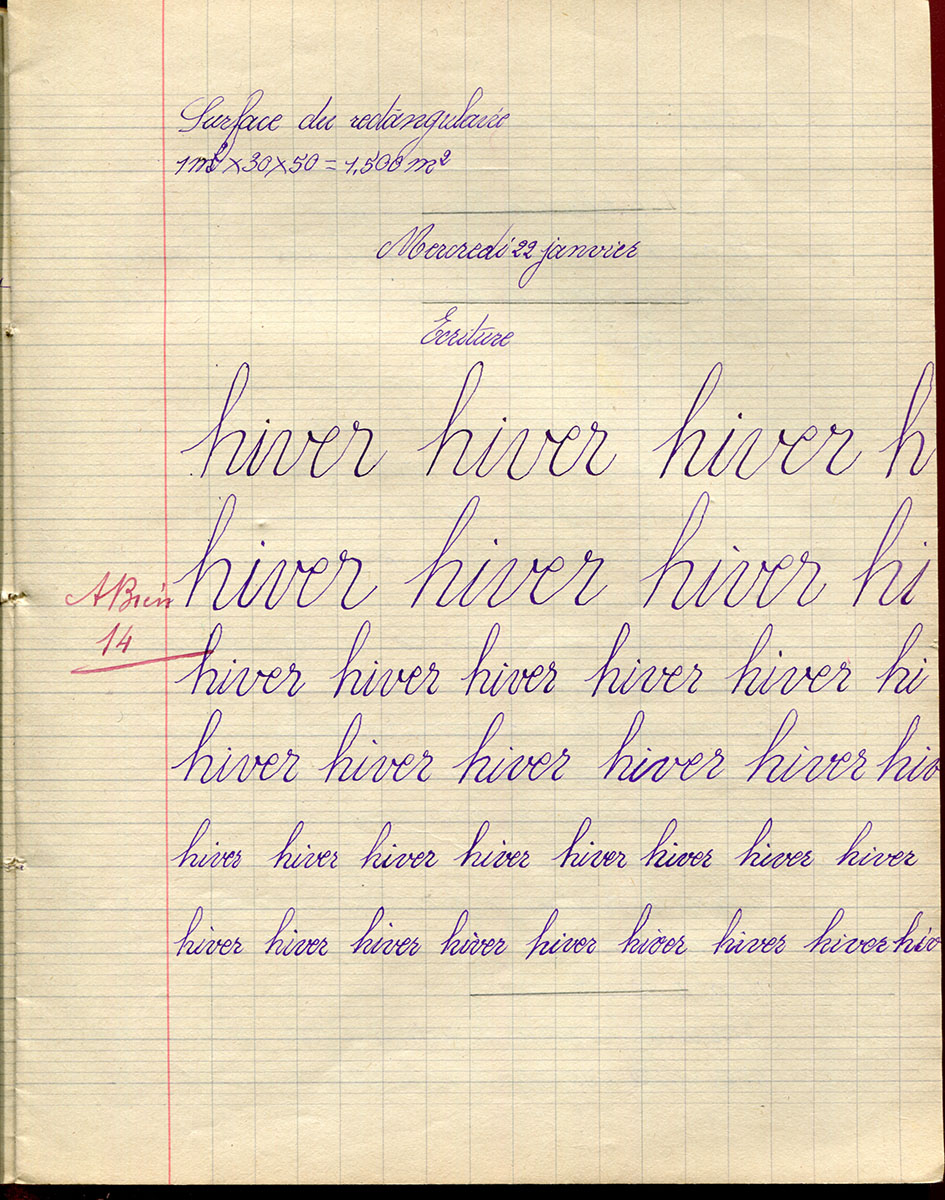 Surface du rectangulaire
1m² × 30 × 50 = 1,500 m²
Mercredi 22 janvier
Ecriture
hiver hiver hiver h
hiver hiver hiver hi
ABien
14
hiver hiver hiver hiver hiver hi
hiver hiver hiver hiver hiver hiv
hiver hiver hiver hiver hiver hiver hiver hiver
hiver hiver hiver hiver hiver hiver hiver hiver hiv